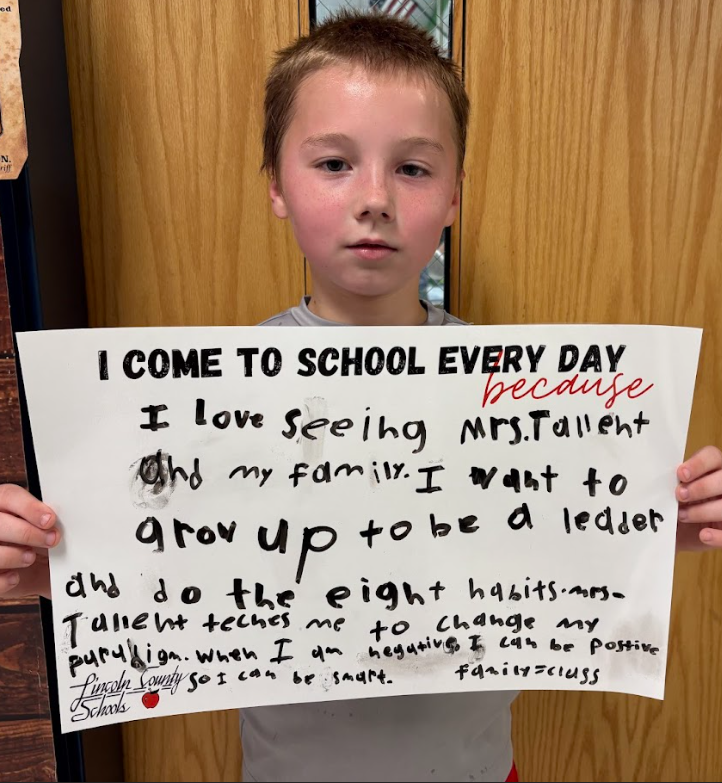 ed
N.
riff
I COME TO SCHOOL EVERY DAY
because
I love seeing Mrs.Tallent
and my family. I want to
grow up to be a leader
and do the eight habits.mrs-
Tallent teches me to change my
puradigm. when I am negative, I can be postive
so I can be smart. family=class
Lincoln County
Schools